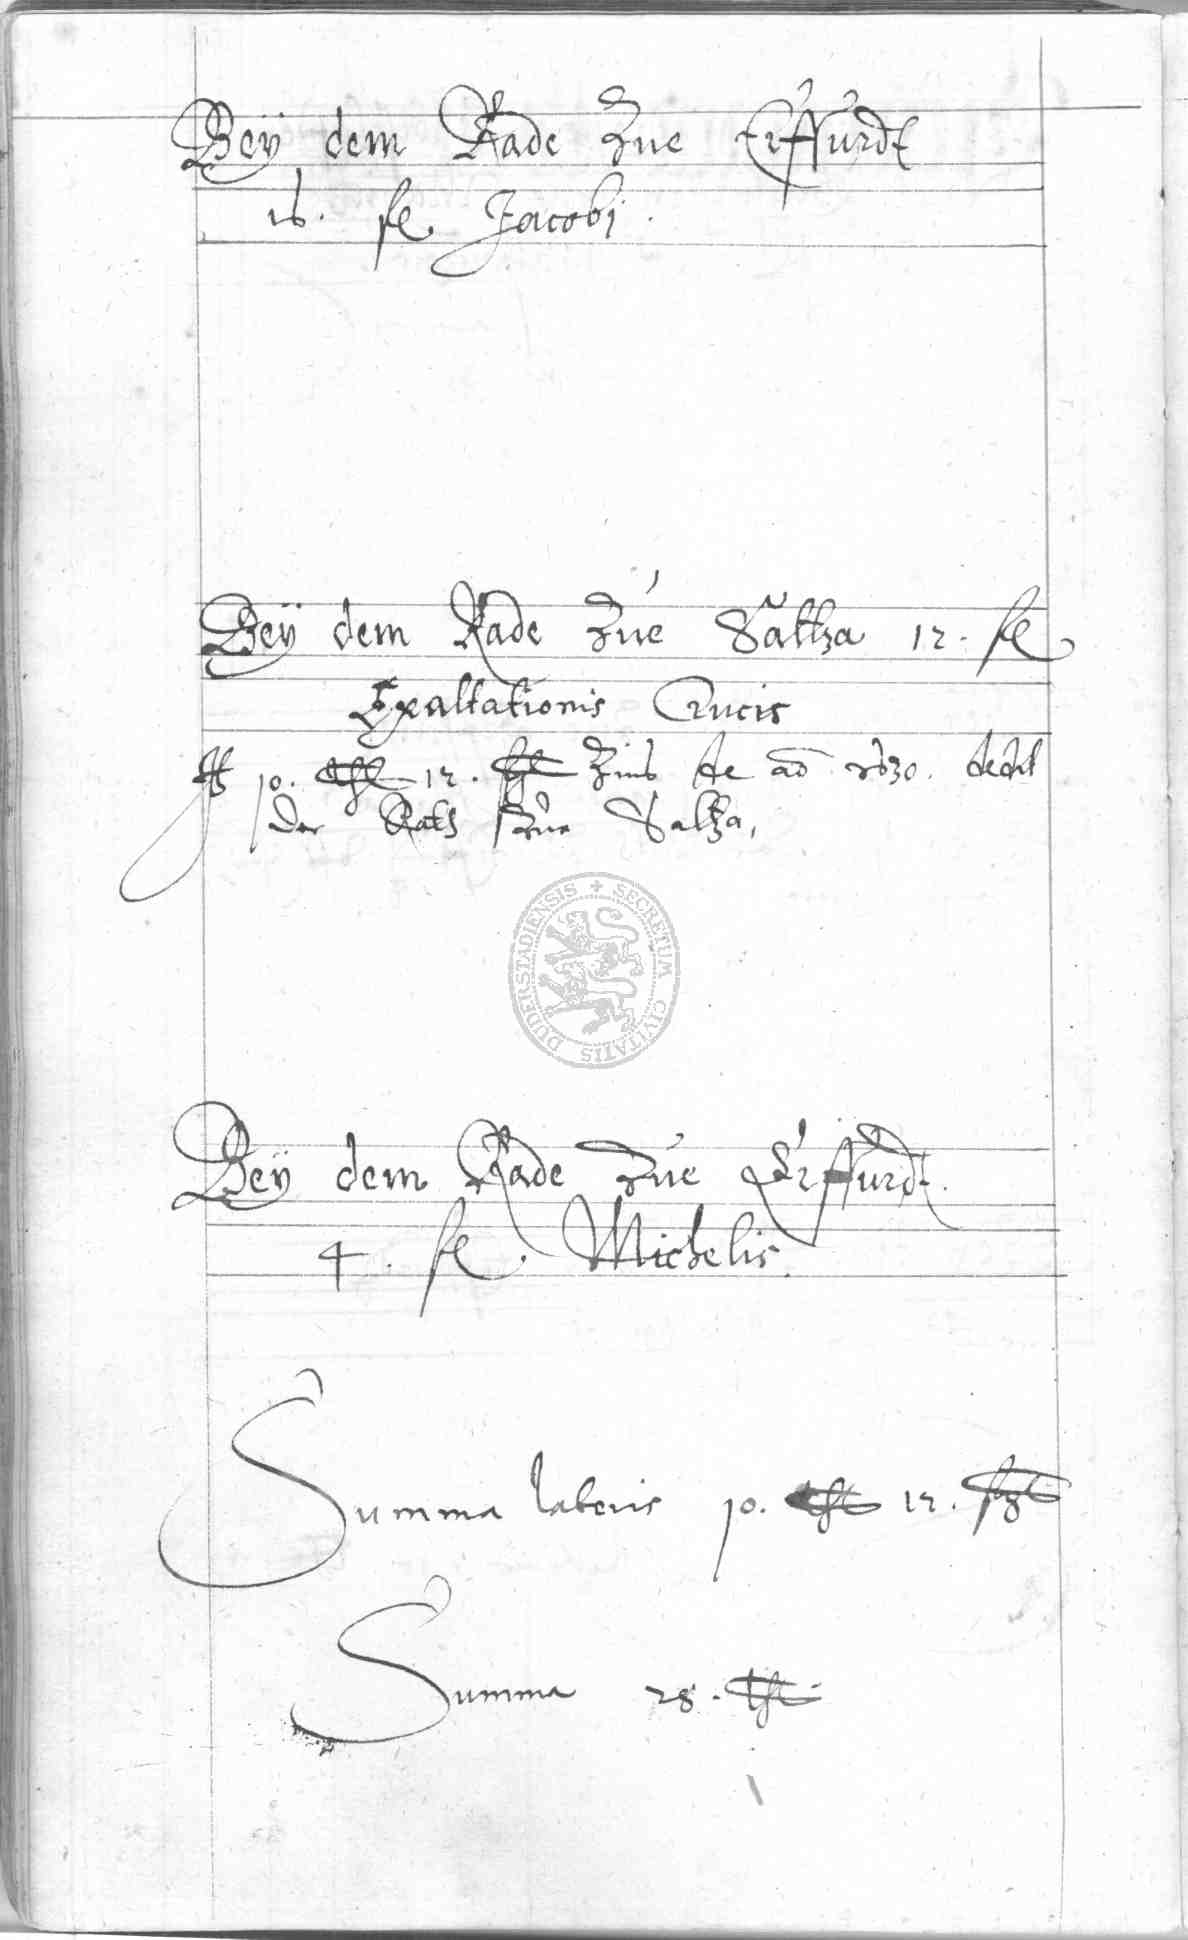 Beÿ dem Rade Zue Erffurdt
16. fl. Jacobj.
Beÿ dem Rade Zue Saltza 12. fl
Exaltationis Crucis
10. 12. Zins de ao 1630. dedit
der Rath Zue Saltza,
DUDERSTADIENSIS + SECRETUM CIVITATIS
Beÿ dem Rade Zue Erffurdt.
4. fl. Michelis.
Summa lateris 10. 12.
Summa 28.